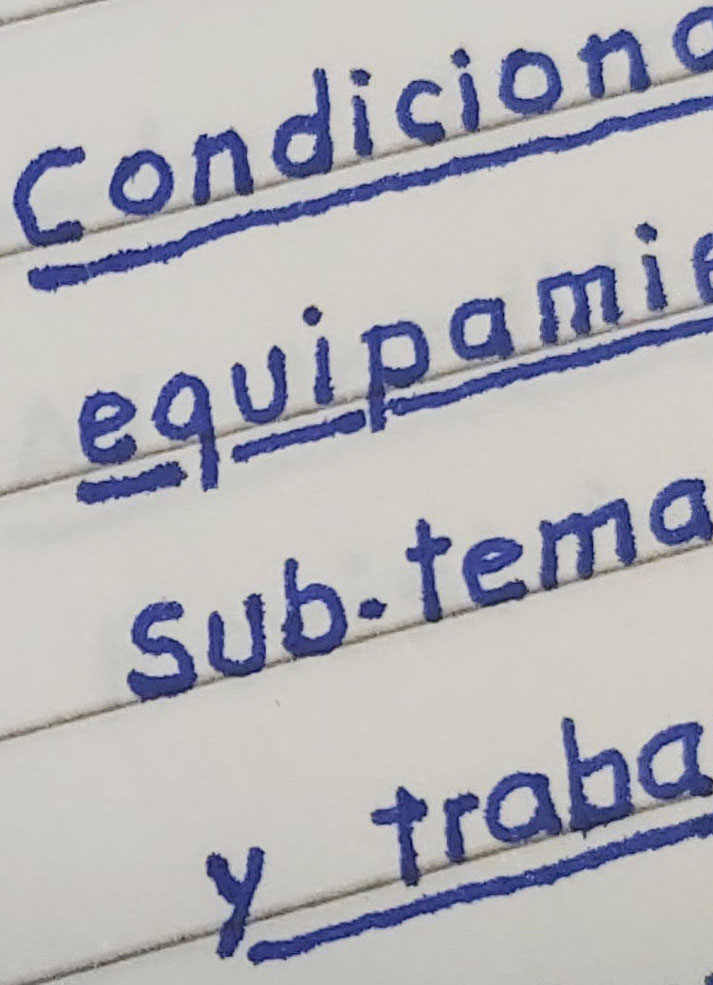 Condiciona
equipamie
Sub-tema
y traba